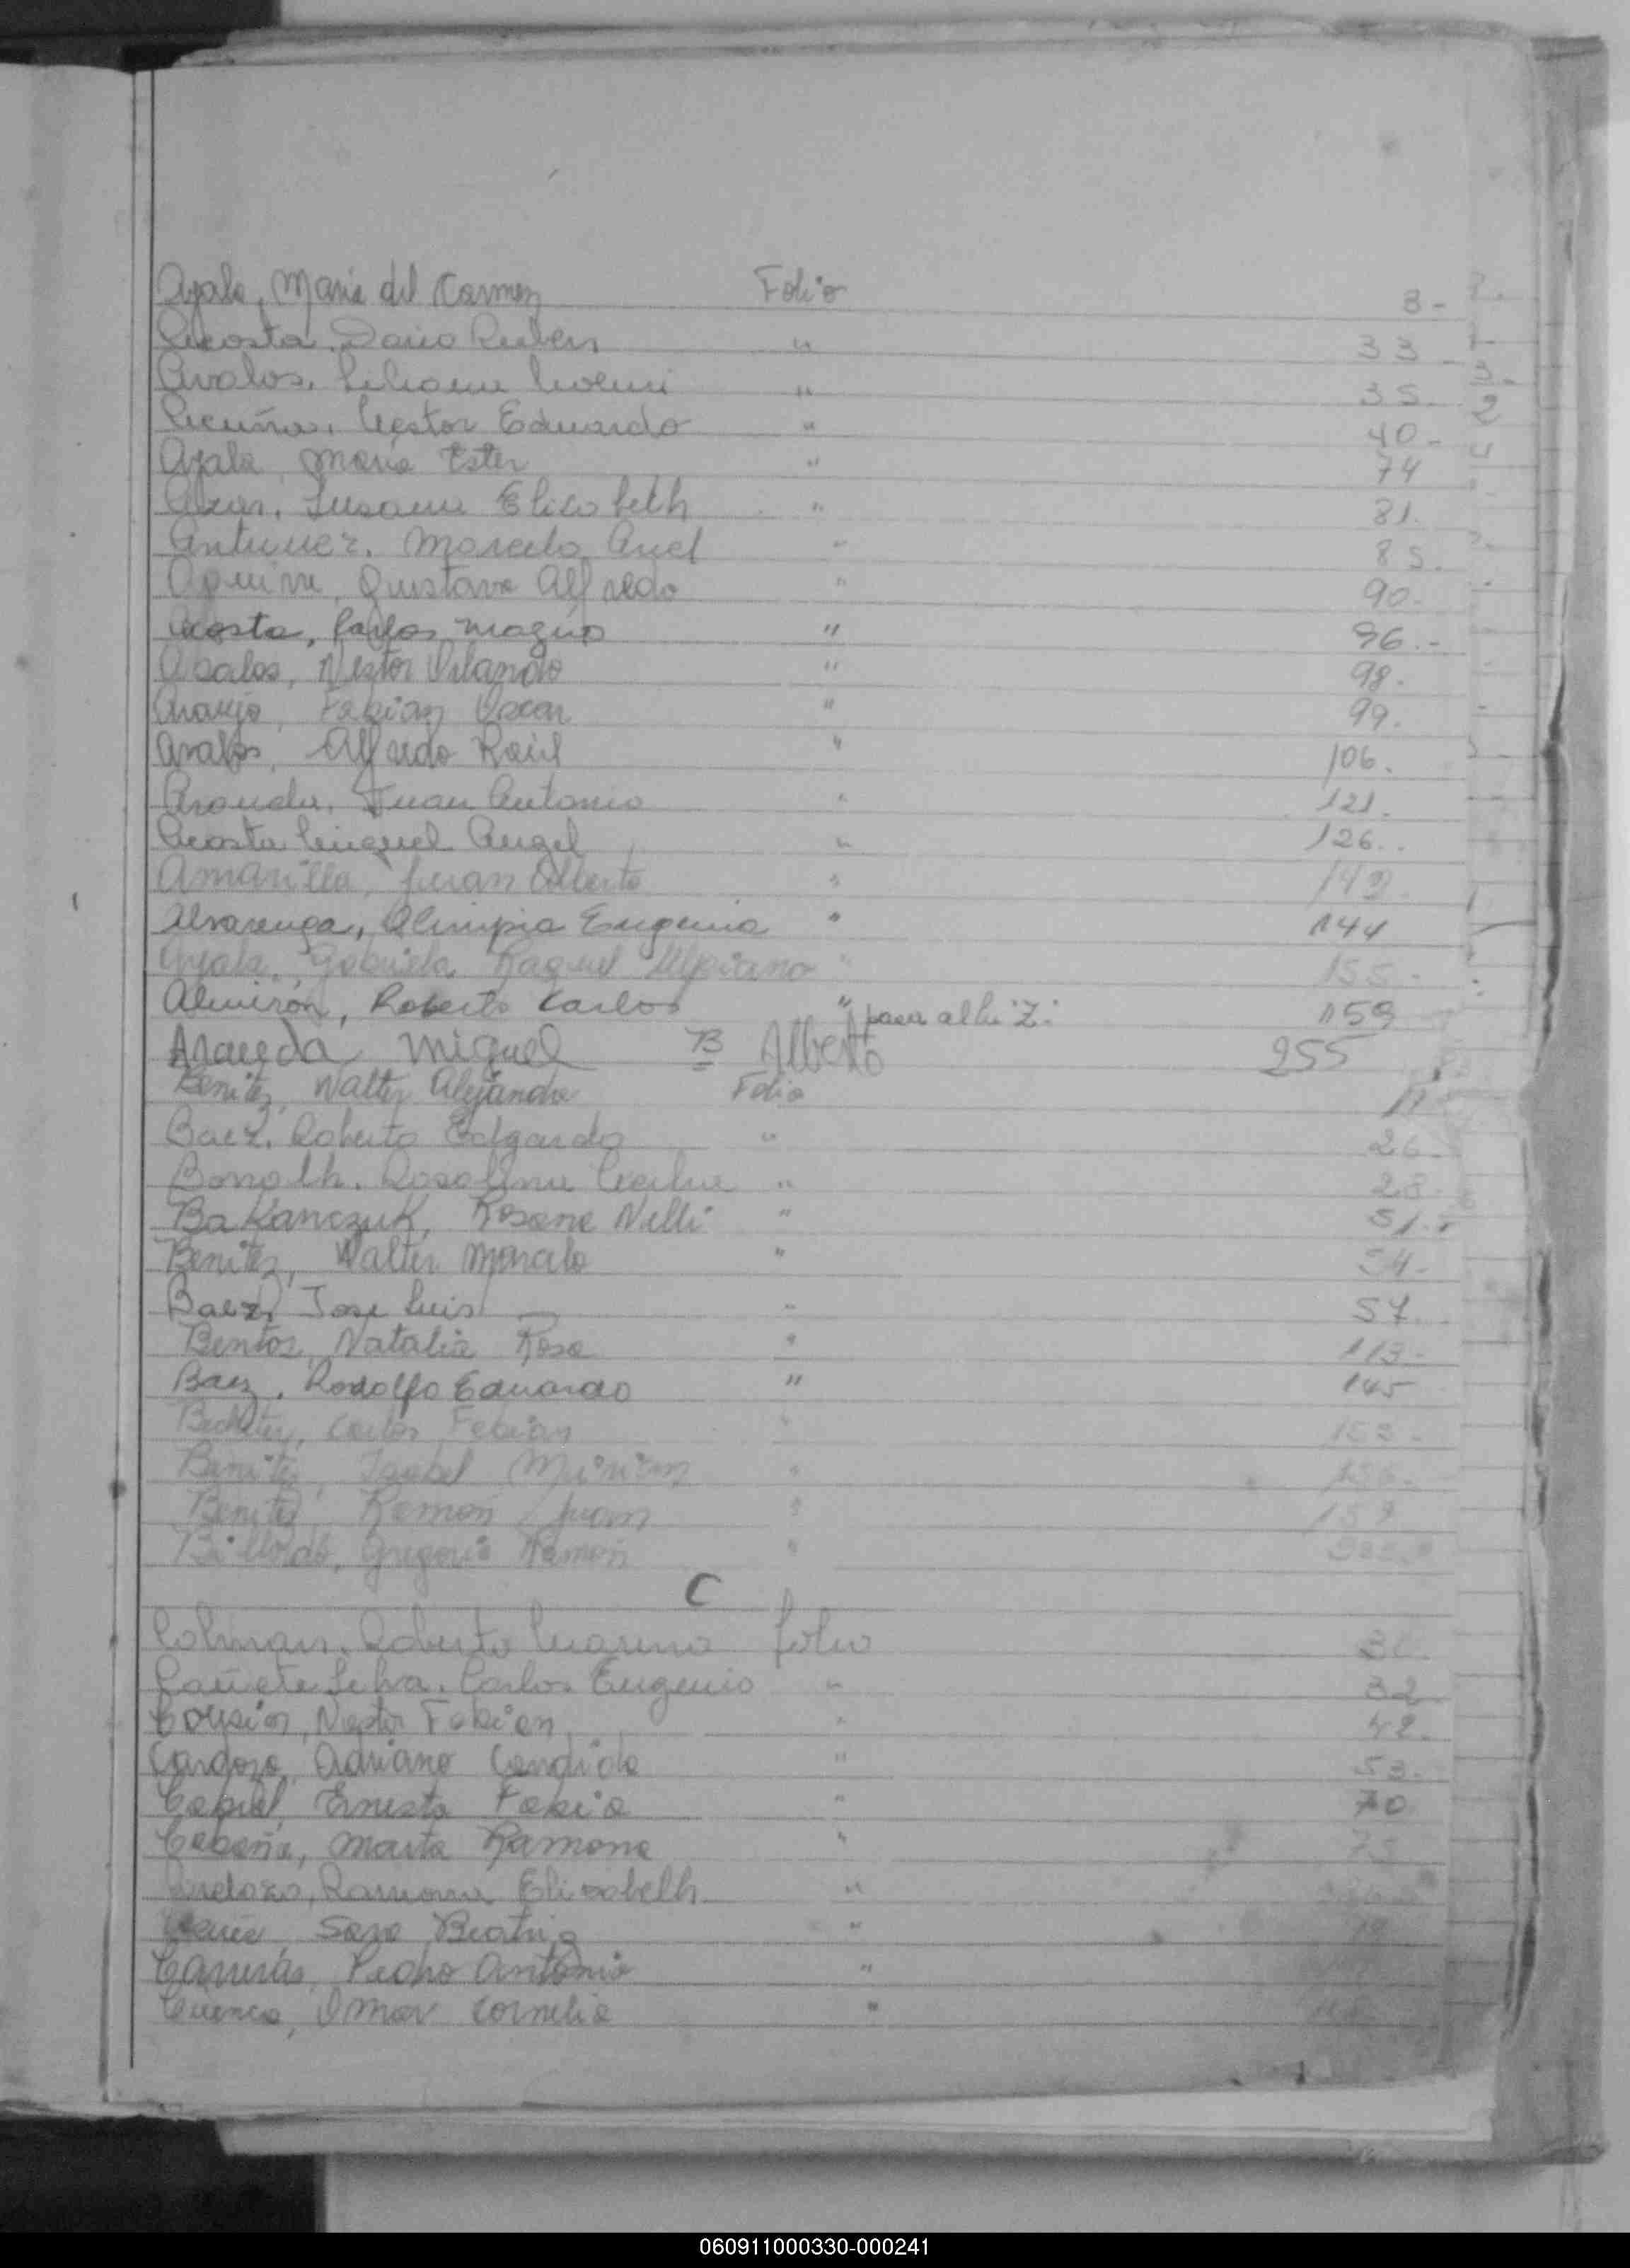 Ayala, Maria del Carmen Folio 3-
Acosta, Dario Ruben " 33
Avalos, Liliana Noemi " 35.
Acuña, Nestor Eduardo " 40-
Ayala Maria Ester " 74
Susana Elisabeth " 81.
Antunez, Marcelo Ariel " 85.
Aguirre, Gustavo Alfredo " 90.
Acosta, Carlos Magno " 96.-
Abalos, Nestor Orlando " 98.
Araujo, Fabian Oscar " 99.
Avalos, Alfredo Raúl " 106.
Aranda, Juan Antonio " 121.
Acosta Miguel Angel " 126..
Amarilla, Juan Alberto "
Alvarenga, Olimpia Eugenia " 144
Ayala, Gabriela Raquel " 155-
Almirón, Roberto Carlos " 159
Miguel B Alberto 255
Benitez, Walter Alejandro Folio 11
Baez, Roberto Edgardo " 26.
Rosalina Cecilia " 28.
Bakanczuk, Rosana Nelli " 51.
Benitez, Walter Marcelo " 54-
Baez, Jose Luis " 57.
Bentos, Natalia Rosa " 113-
Baez, Rodolfo Eduardo " 145
Carlos Fabian "
Benitez, Isabel Mirian "
Benitez, Ramon Juan "
Gregorio Ramon "
C
Colman, Roberto Mariano folio
Cañete Silva, Carlos Eugenio " 32
Nestor Fabian " 42.
Cardozo, Adriano Candido " 53.
Ernesto Fabio " 70
Cabaña, Marta Ramona " 75
Ramona Elisabeth "
Sara Beatriz "
Carreras, Pedro Antonio "
Cuenca, Omar Cornelio "
060911000330-000241